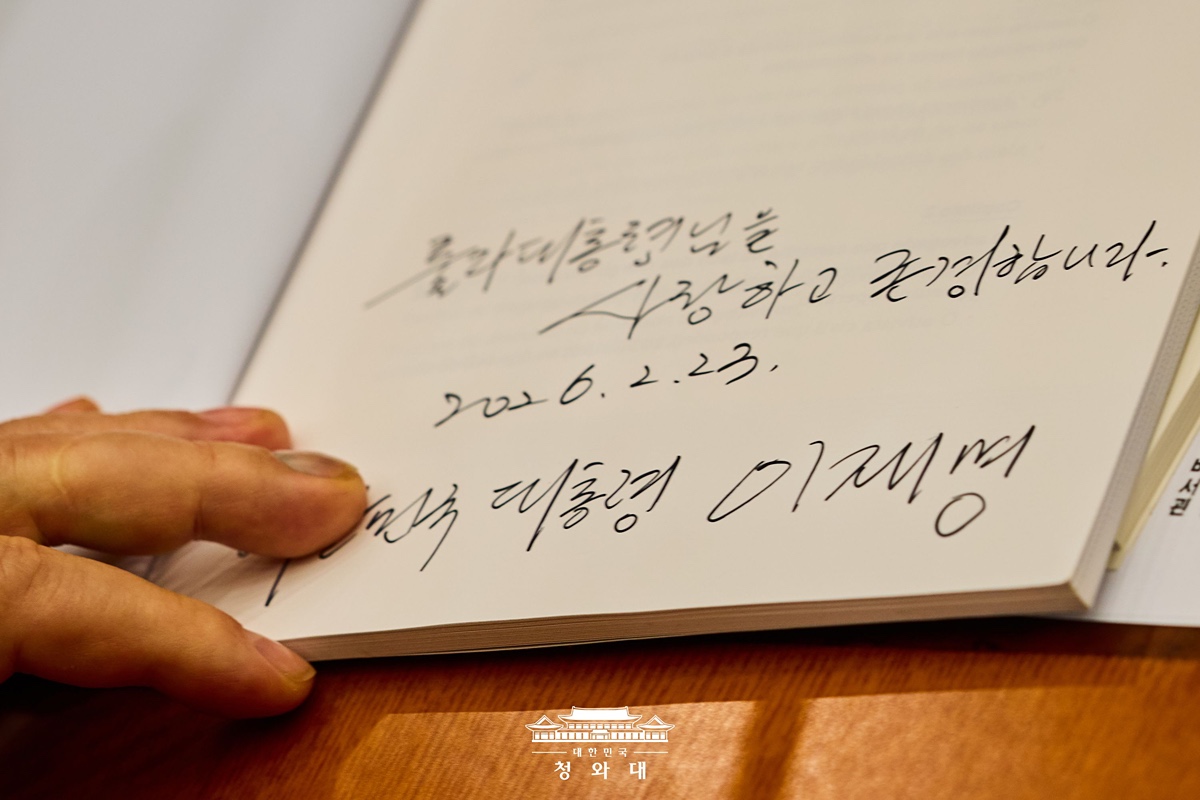 룰라 대통령님을
사랑하고 존경합니다.
2026. 2. 23.
민국 대통령 이재명
대한민국
청와대